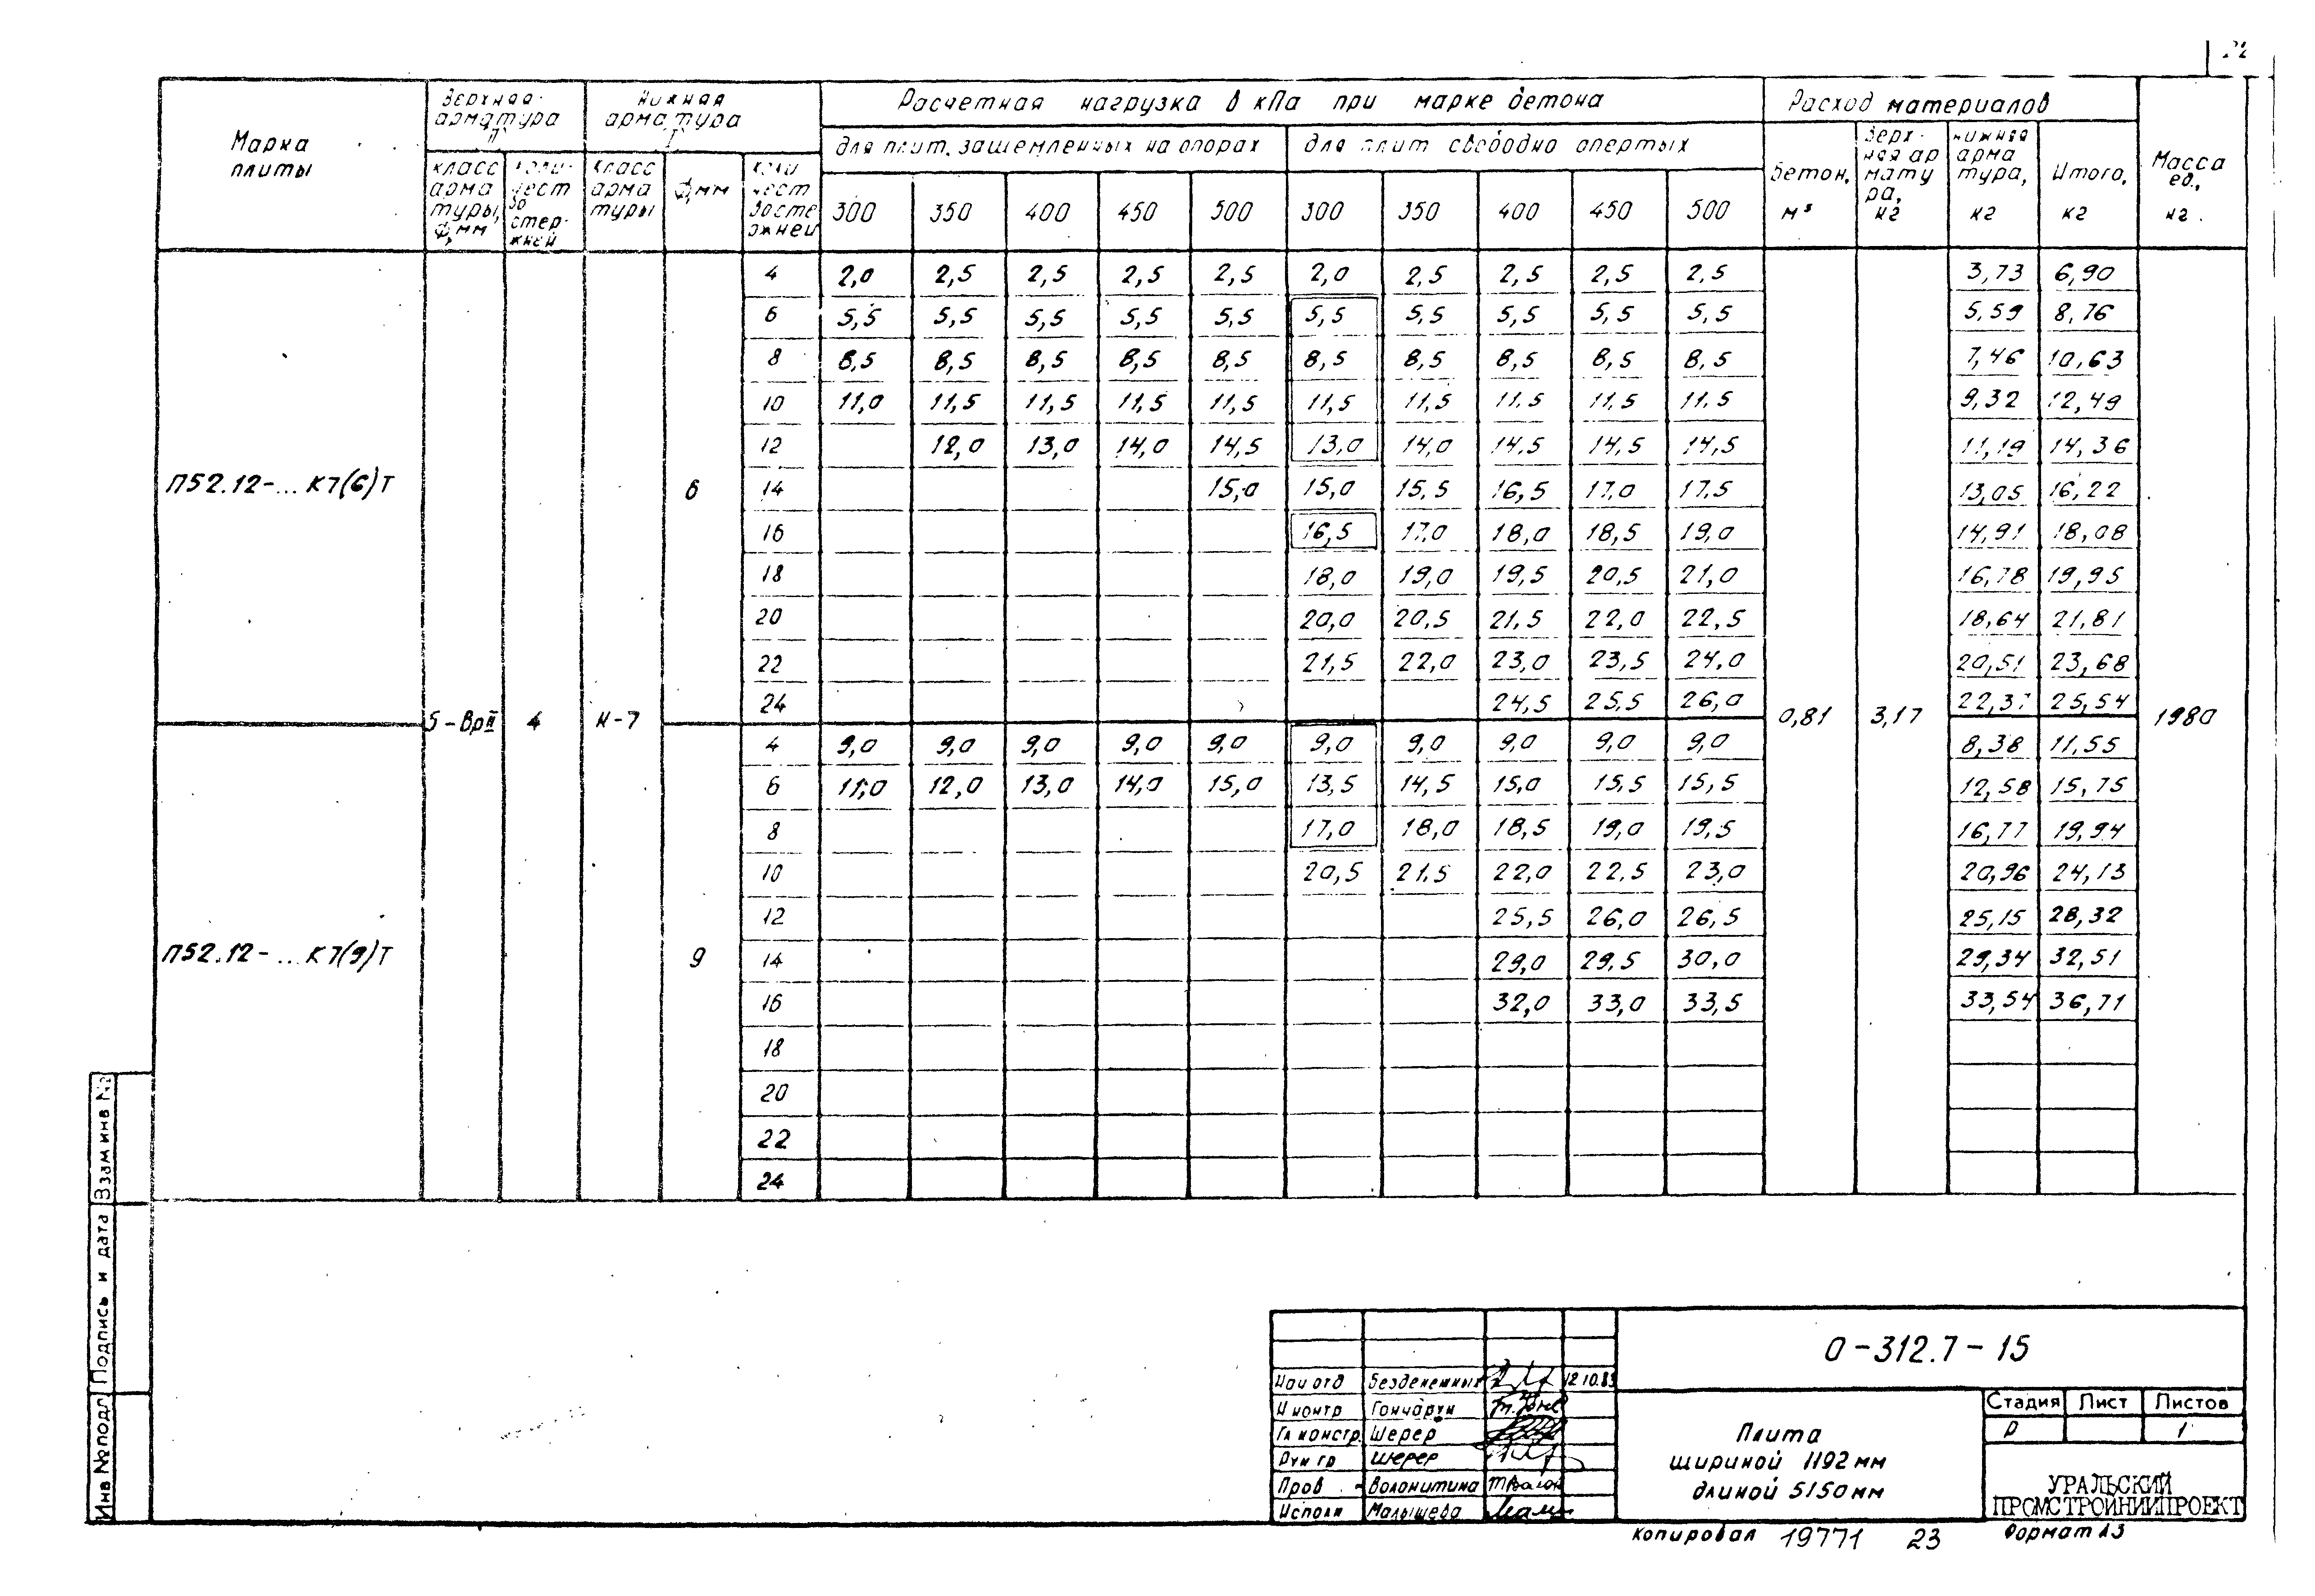 22
Марка плиты
Верхняя арматура П`
Нижняя арматура Г`
Расчетная нагрузка в кПа при марке бетона
Расход материалов
Масса ед., кг.
для плит, защемленных на опорах
для плит свободно опертых
класс арматуры, ф, мм
количество стержней
класс арматуры
ф, мм
количество стержней
300 350 400 450 500 300 350 400 450 500
Бетон, м³
Верхняя арматура, кг
нижняя арматура, кг
Итого, кг
4 2,0 2,5 2,5 2,5 2,5 2,0 2,5 2,5 2,5 2,5 3,73 6,90
6 5,5 5,5 5,5 5,5 5,5 5,5 5,5 5,5 5,5 5,5 5,59 8,76
8 8,5 8,5 8,5 8,5 8,5 8,5 8,5 8,5 8,5 8,5 7,46 10,63
10 11,0 11,5 11,5 11,5 11,5 11,5 11,5 11,5 11,5 11,5 9,32 12,49
12 12,0 13,0 14,0 14,5 13,0 14,0 14,5 14,5 14,5 11,19 14,36
П52.12-... К7(6)Т 6 14 15,0 15,0 15,5 16,5 17,0 17,5 13,05 16,22
16 16,5 17,0 18,0 18,5 19,0 14,91 18,08
18 18,0 19,0 19,5 20,5 21,0 16,78 19,95
20 20,0 20,5 21,5 22,0 22,5 18,64 21,81
22 21,5 22,0 23,0 23,5 24,0 20,51 23,68
24 24,5 25,5 26,0 22,37 25,54
5-ВрII 4 К-7 0,81 3,17 1980
4 9,0 9,0 9,0 9,0 9,0 9,0 9,0 9,0 9,0 9,0 8,38 11,55
6 11,0 12,0 13,0 14,0 15,0 13,5 14,5 15,0 15,5 15,5 12,58 15,75
8 17,0 18,0 18,5 19,0 19,5 16,77 19,94
10 20,5 21,5 22,0 22,5 23,0 20,96 24,13
12 25,5 26,0 26,5 25,15 28,32
П52.12-... К7(9)Т 9 14 29,0 29,5 30,0 29,34 32,51
16 32,0 33,0 33,5 33,54 36,71
18
20
22
24
Взам инв №
Подпись и дата
Инв № подл
О-312.7-15
Нач отд Безденежных 12.10.83
Н контр Гончарун
Гл констр. Шерер
Рук гр Шерер
Пров Волокитина
Исполн Малышева
Плита
шириной 1192 мм
длиной 5150 мм
Стадия Лист Листов
Р 1
УРАЛЬСКИЙ
ПРОМСТРОЙНИИПРОЕКТ
Копировал 19771 23 Формат А3